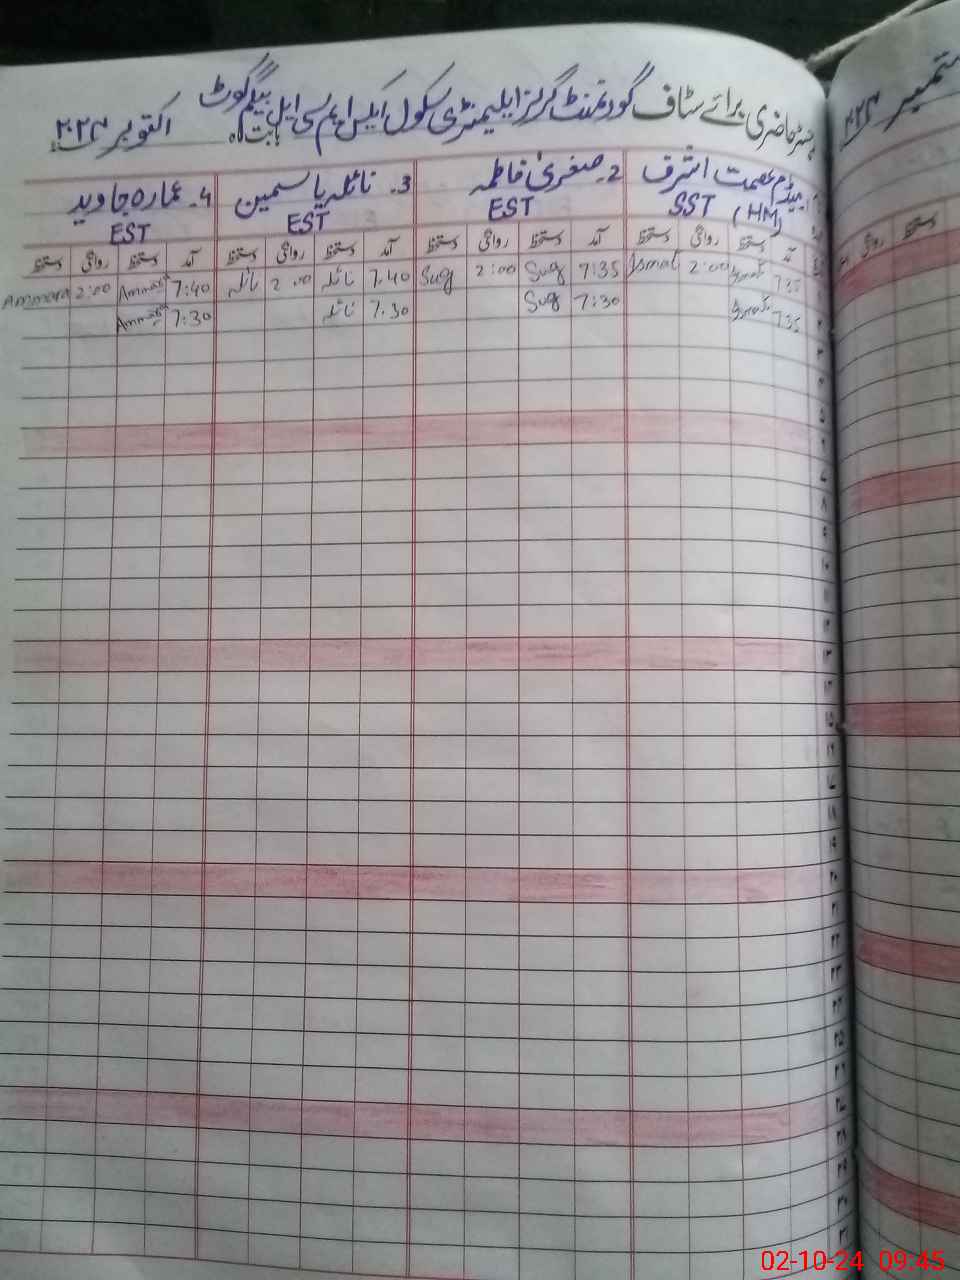 رجسٹر حاضری برائے سٹاف گورنمنٹ گرلز ایلیمنٹری سکول ایکس ایم سی ایل بیگم کوٹ
بابت ماہ اکتوبر ۲۰۲۴
میڈم عصمت اشرف 2۔ صغریٰ فاطمہ 3۔ نائلہ یاسمین 4۔ عمارہ جاوید
SST (HM) EST EST EST
آمد دستخط روانگی دستخط آمد دستخط روانگی دستخط آمد دستخط روانگی دستخط آمد دستخط روانگی دستخط
735 Ismat 2:00 Ismat 7:35 Sug 2:00 Sug 7.40 نائلہ 2.00 نائلہ 7:40 Ammara 2:00 Ammara
735 Ismat 7:30 Sug 7.30 نائلہ 7:30 Ammara
ستمبر ۲۰۲۴
دستخط روانگی
02-10-24 09:45